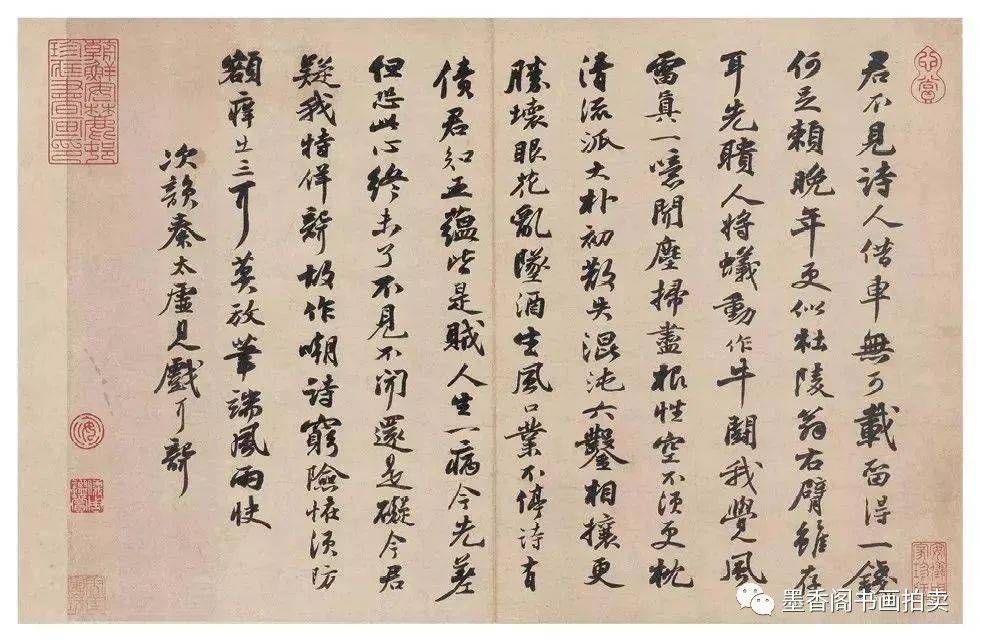 君不見詩人借車無可載留得一錢
何足賴晚年更似杜陵翁右臂雖存
耳先聵人將蟻動作牛鬭我覺風
雷真一噫聞塵掃盡根性空不須更枕
清流派大朴初散失混沌六鑿相攘更
勝壞眼花亂墜酒生風口業不停詩有
債君知五蘊皆是賊人生一病今先差
但恐此心終未了不見不聞還是礙今君
疑我特佯聾故作嘲詩窮險怪須防
額痒出三耳莫放筆端風雨快
次韻秦太虛見戲耳聾
朝鮮安麓村珍藏書畫印
墨香阁书画拍卖